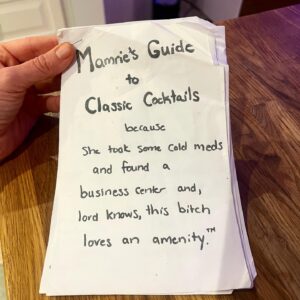 Mamrie's Guide
to
Classic Cocktails
because
She took some cold meds
and found a
business center and,
lord knows, this bitch
loves an amenity.™